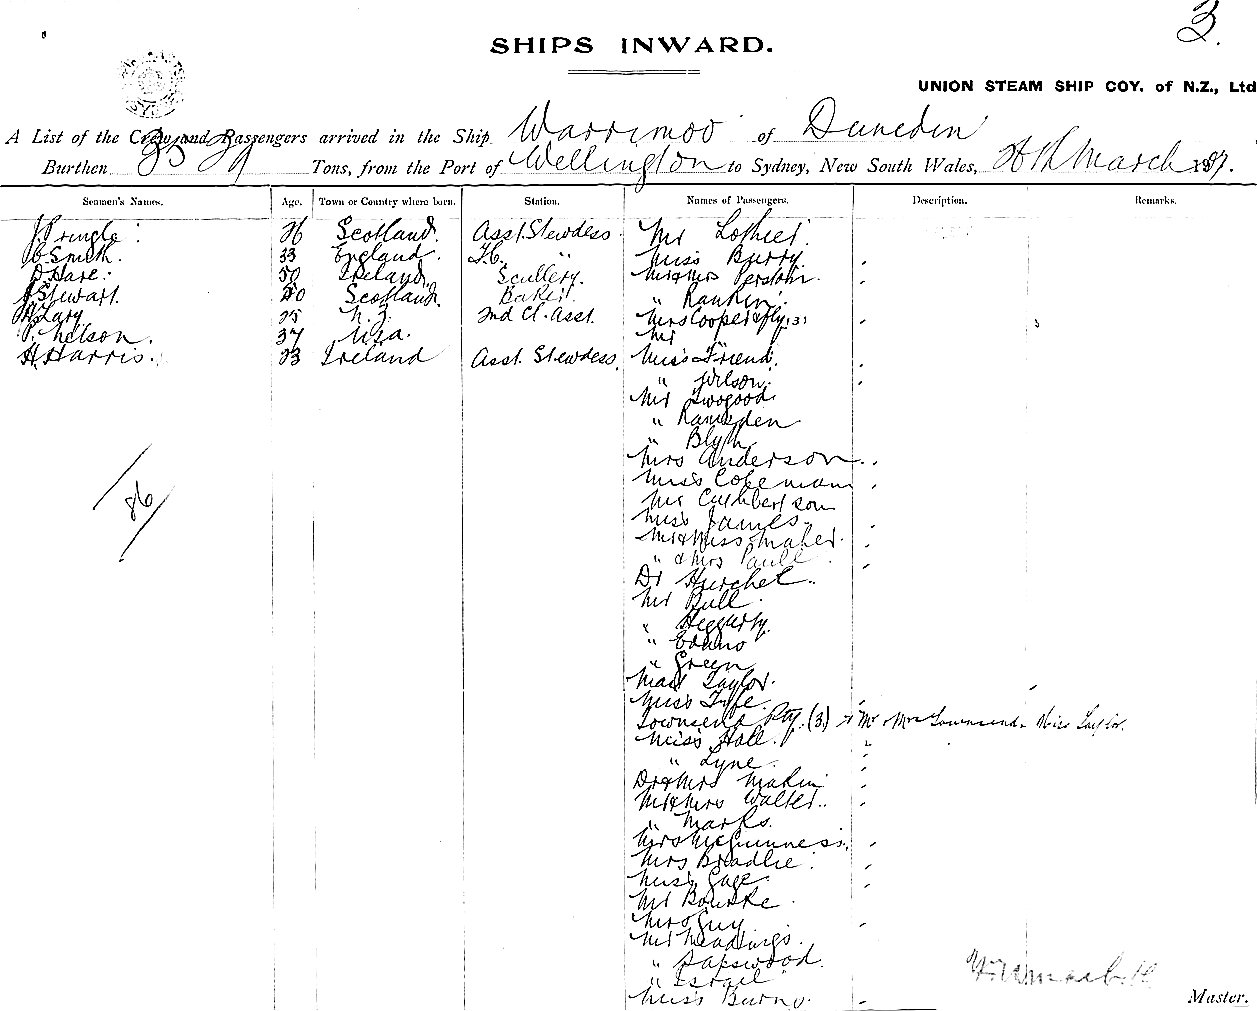 3.
SHIPS INWARD.
UNION STEAM SHIP COY. of N.Z., Ltd
A List of the Crew and Passengers arrived in the Ship Warrimoo of Dunedin
Burthen Tons, from the Port of Wellington to Sydney, New South Wales, March 1897.
Seamen's Names. Age. Town or Country where born. Station. Names of Passengers. Description. Remarks.
J. Pringle 26 Scotland. Asst. Stewdess. Mr
Smith. 33 England. F.C. " Miss Burry.
D. Hare. 50 Ireland. Scullery. Mr & Mrs
J. Stewart. 20 Scotland. Baker. " Rankin.
25 N.Z. 2nd Cl. Asst. Mrs Cooper & fly. 3
P. Nelson. 37 U.S.a. Mr
H. Harris. 23 Ireland Asst. Stewdess. Miss Friend.
" Wilson.
Mr Twogood.
" Ramsden
" Blyth
Mrs Anderson
Miss Coleman
Mr Cuthbertson
Miss James
Mr & Miss Maher.
" & Mrs Paull
Dr
Mr Bull.
" Heggarty.
"
" Green
Mast Taylor.
Miss Fyfe.
Townsend Pty. (3) Mr Mrs Townsend Miss Taylor.
Miss Hall.
" Lyne.
Dr & Mrs Makin
Mr & Mrs Walter.
" Marks.
Mrs McGuinness.
Mrs Bradlie.
Miss Gage.
Mr Bourke
Mrs Guy.
Mr Meadings.
" Sapswood.
" Israel
Miss Burns.
86
Master.